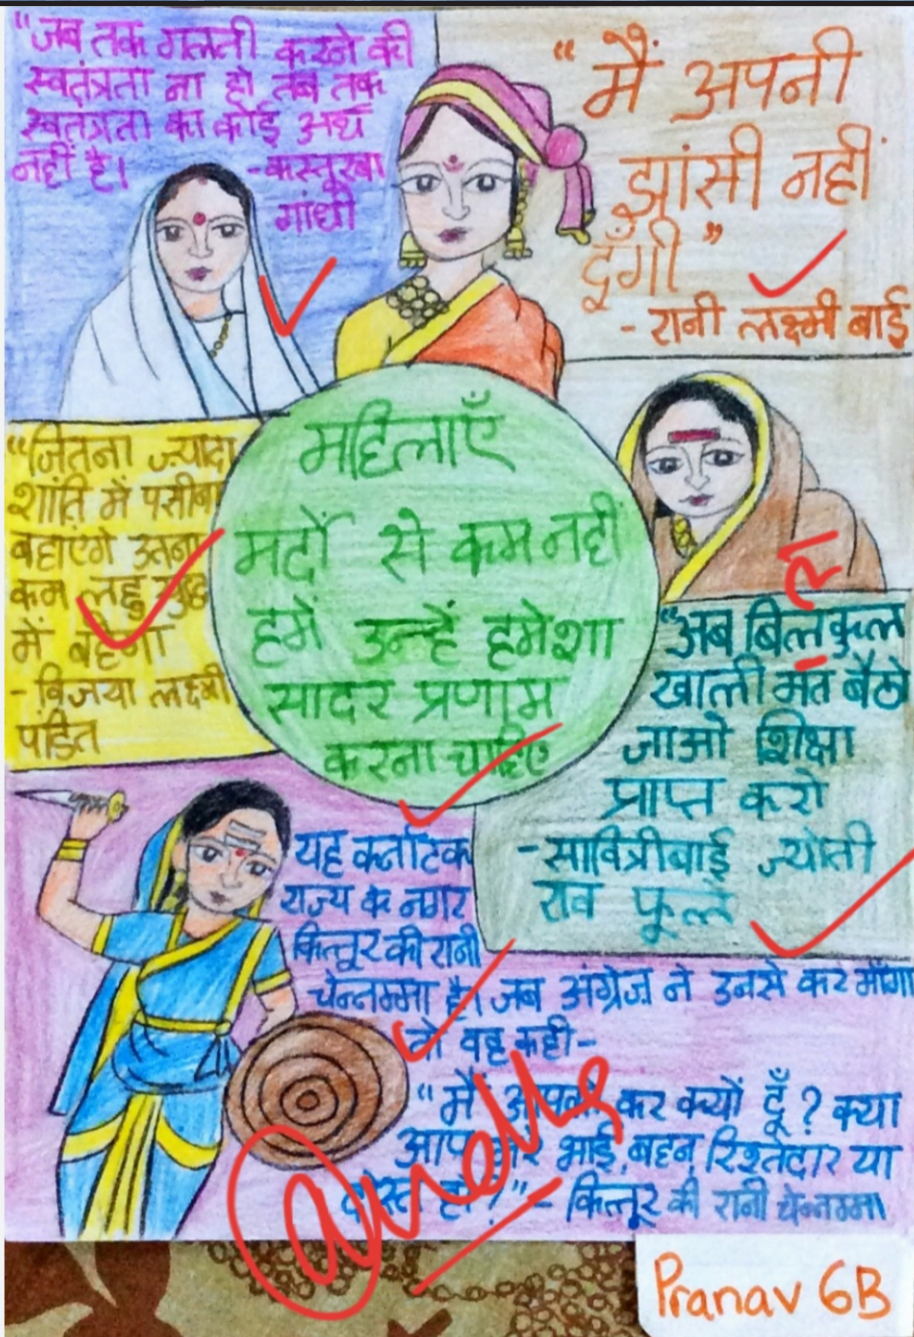 "जब तक गलती करने की
स्वतंत्रता ना हो तब तक
स्वतंत्रता का कोई अर्थ
नहीं है।
-कस्तूरबा
गांधी
"मैं अपनी
झांसी नहीं
दूँगी"
- रानी लक्ष्मी बाई
"जितना ज़्यादा
शांति में पसीना
बहाएंगे उतना
कम लहू युद्ध
में बहेगा
- विजया लक्ष्मी
पंडित
महिलाएँ
मर्दों से कम नहीं
हमें उन्हें हमेशा
सादर प्रणाम
करना चाहिए
"अब बिलकुल
खाली मत बैठो
जाओ शिक्षा
प्राप्त करो
- सावित्रीबाई ज्योती
राव फूले
यह कर्नाटक
राज्य के नगर
कित्तूर की रानी
चेन्नम्मा है। जब अंग्रेज़ ने उनसे कर माँगा
तो वह कही-
"मैं आपको कर क्यों दूँ? क्या
आप मेरे भाई, बहन, रिश्तेदार या
दोस्त हो?" - कित्तूर की रानी चेन्नम्मा
Pranav 6B